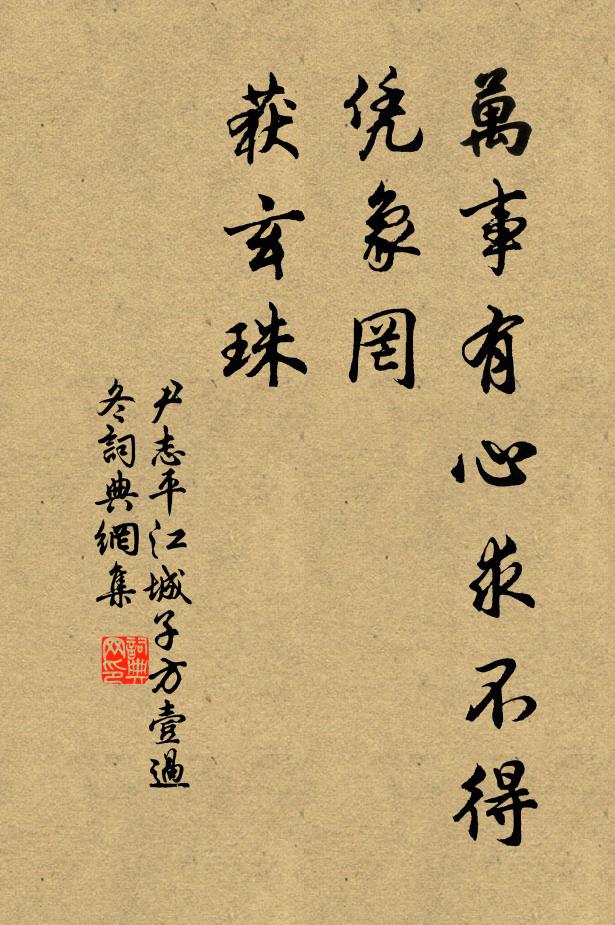 萬事有心求不得
凭象罔
获玄珠
尹志平江城子方壹過
冬詞典網集
詞典
网印